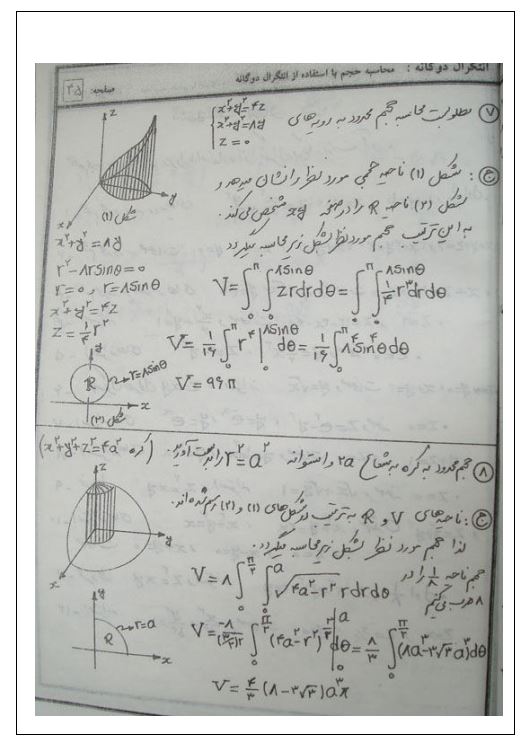 انتگرال دوگانه : محاسبه حجم با استفاده از انتگرال دوگانه
صفحه: ۳۵
۷ مطلوبست محاسبه حجم محدود به رویه‌های
x²+y²=۴z
x²+y²=۸y
z=۰
ج: شکل (۱) ناحیه حجمی مورد نظر را نشان میدهد و
شکل (۲) ناحیه R را در صفحه xy مشخص می‌کند.
به این ترتیب حجم مورد نظر بشکل زیر محاسبه میگردد
z
y
x
شکل (۱)
x²+y²=۸y
r²-۸rsinθ=۰
r=۰ , r=۸sinθ
x²+y²=۴z
z=¼r²
V=∫₀^π∫₀^۸sinθ zrdrdθ=∫₀^π∫₀^۸sinθ ¼r³drdθ
V=۱/۱۶∫₀^π r⁴|₀^۸sinθ dθ=۱/۱۶∫₀^π ۸⁴sin⁴θdθ
V=۹۶π
y
R
r=۸sinθ
x
شکل (۲)
۸ حجم محدود به کره به شعاع ۲a و استوانه r²=a² را بدست آورید. (کره x²+y²+z²=۴a²)
ج: ناحیه‌های V و R به ترتیب در شکل‌های (۱) و (۲) رسم شده‌اند.
لذا حجم مورد نظر بشکل زیر محاسبه میگردد.
حجم ناحیه ۱/۸ را در
۸ ضرب می‌کنیم
z
y
x
V=۸∫₀^π/۲∫₀^a √(۴a²-r²) rdrdθ
y
r=a
R
x
V=-۸/(۳/۲)(۲)∫₀^π/۲(۴a²-r²)^۳/۲|₀^a dθ=۸/۳∫₀^π/۲(۸a³-۳√۳a³)dθ
V=۴/۳(۸-۳√۳)a³π